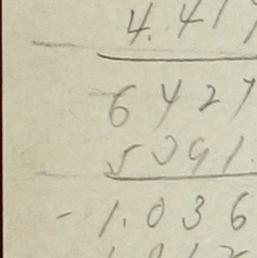 4.41
6427
5391.
- 1.036